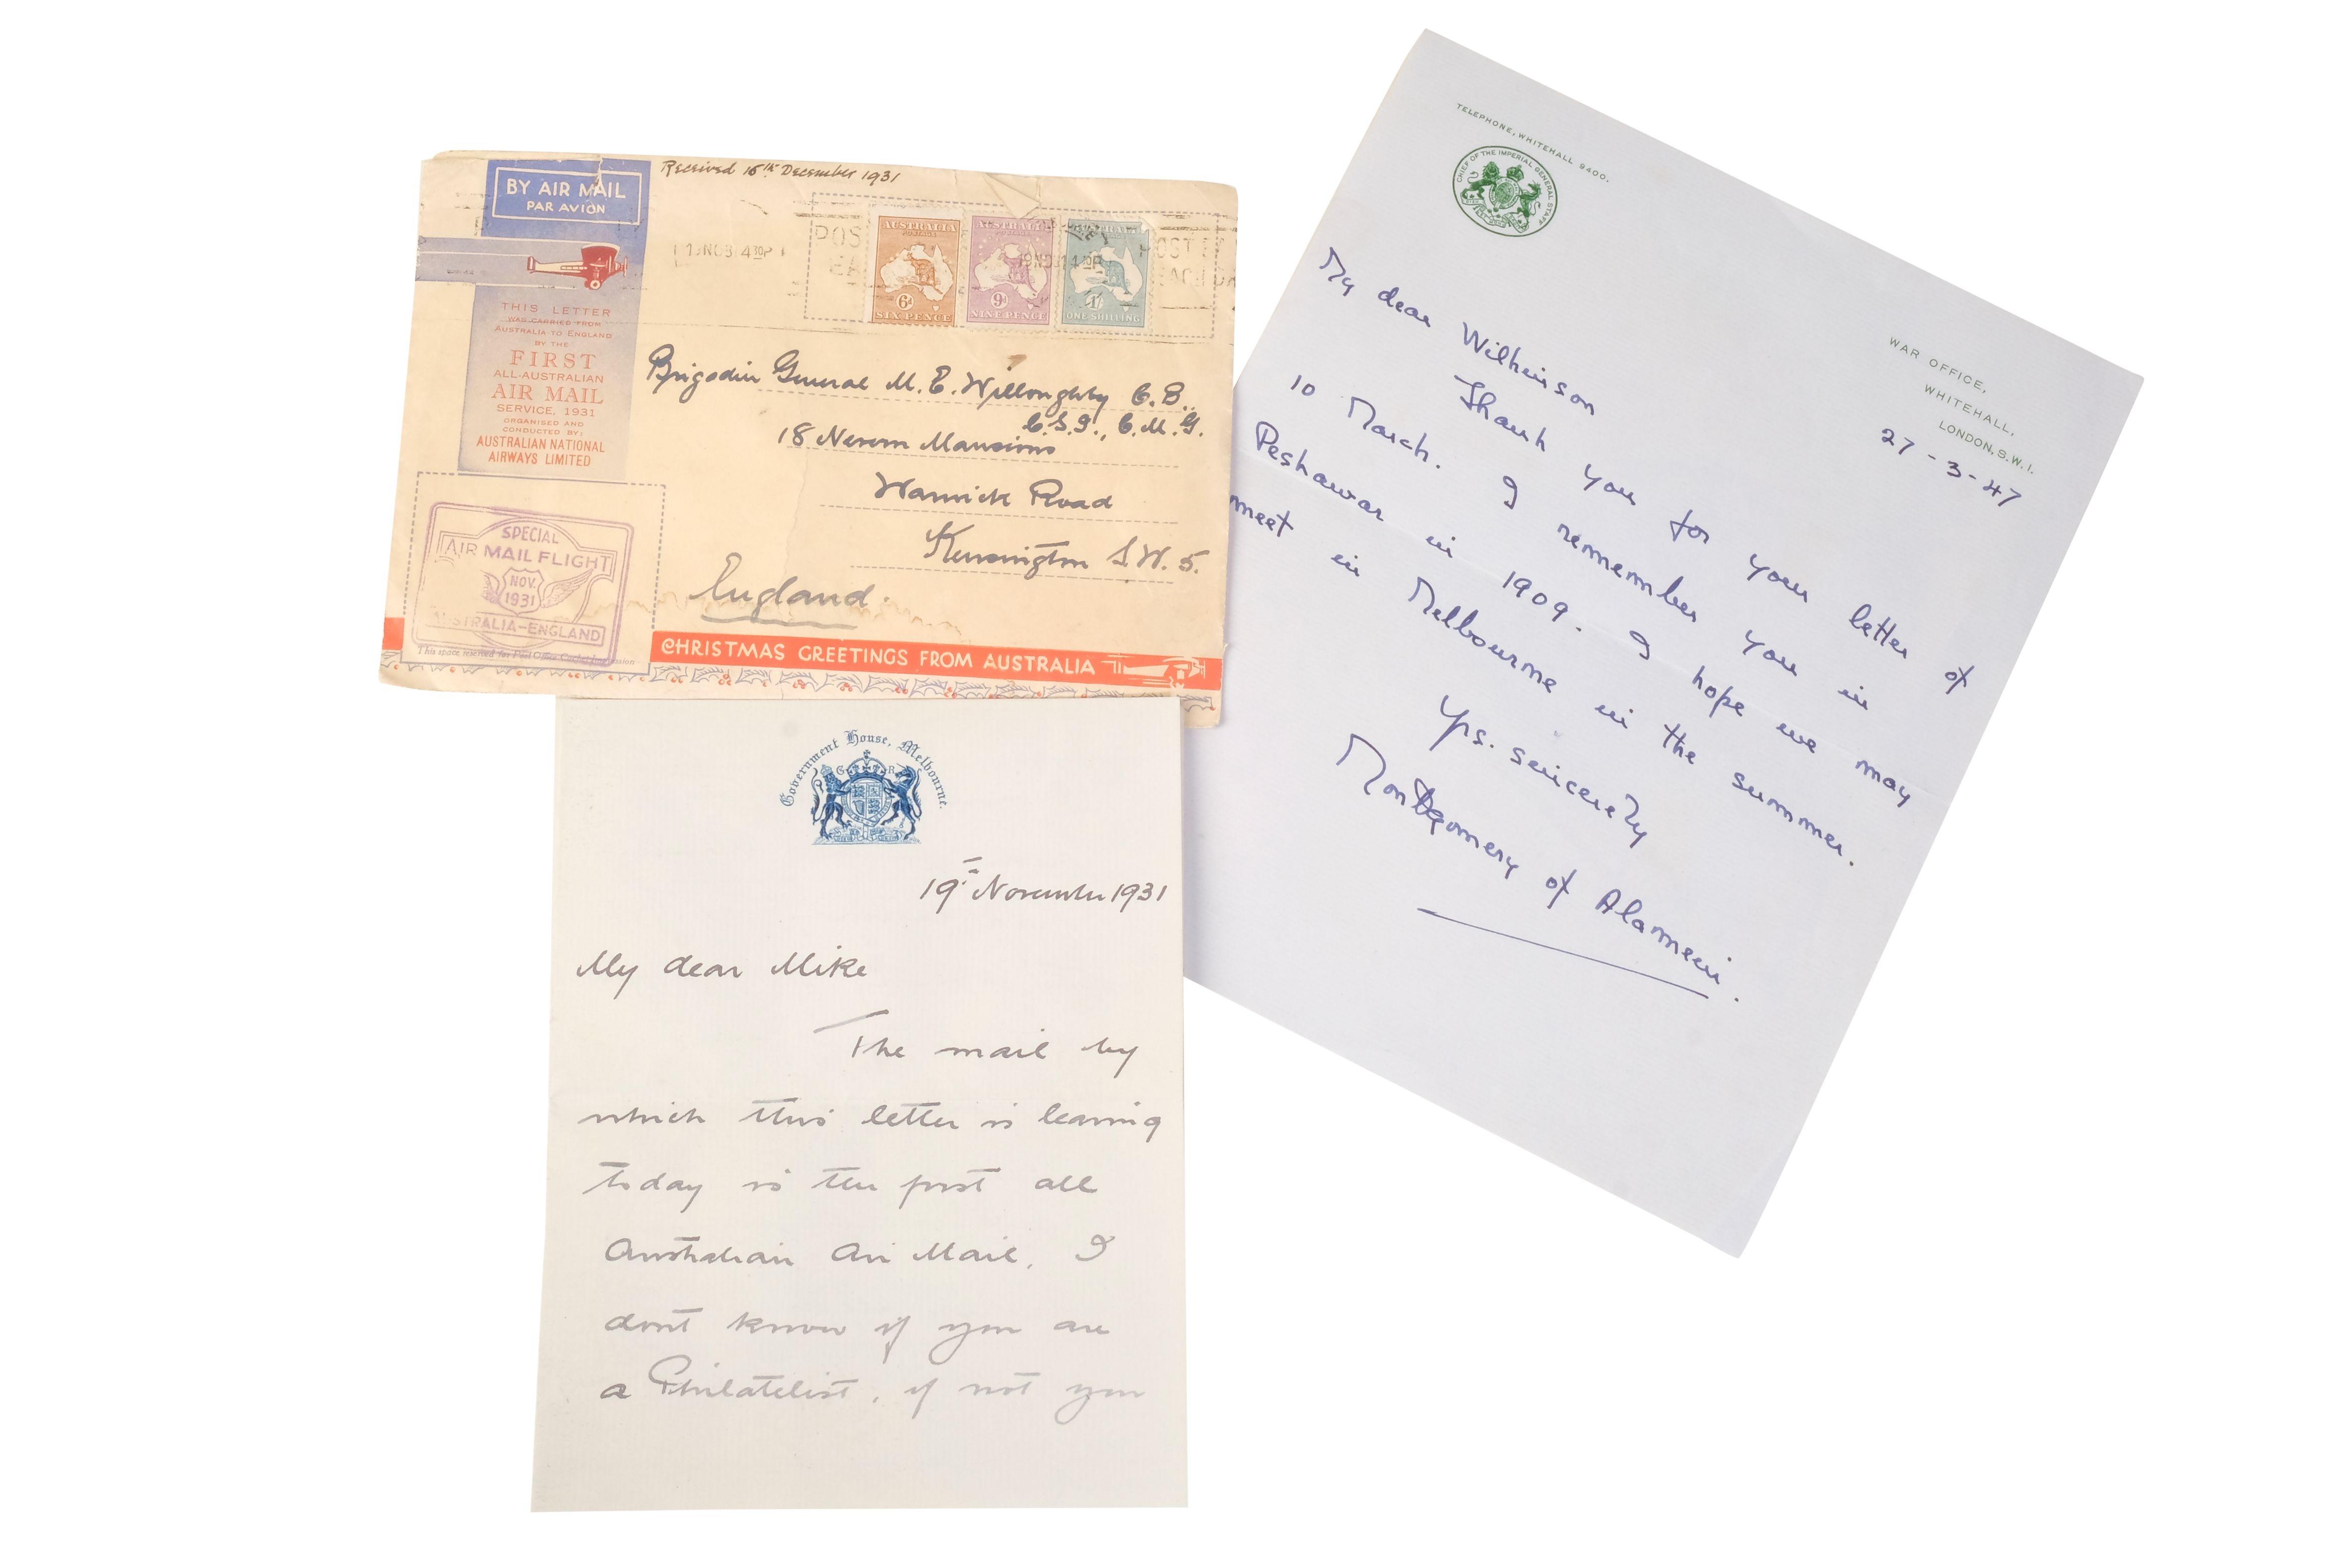 BY AIR MAIL
PAR AVION
Received 16th December 1931
19 NO 31 4 30P
POST EARLY
AUSTRALIA
POSTAGE
6d
SIX PENCE
AUSTRALIA
9d
NINE PENCE
SYDNEY
19 NO 31 4 30P
AUSTRALIA
1/-
ONE SHILLING
POST EARLY
EACH DAY
THIS LETTER
WAS CARRIED FROM
AUSTRALIA TO ENGLAND
BY THE
FIRST
ALL-AUSTRALIAN
AIR MAIL
SERVICE, 1931
ORGANISED AND
CONDUCTED BY:
AUSTRALIAN NATIONAL
AIRWAYS LIMITED
Brigadier General M. E. Willoughby C. B.,
C.S.I., C.M.G.
18 Nevern Mansions
Warwick Road
Kensington S.W. 5.
England.
SPECIAL
AIR MAIL FLIGHT
NOV.
1931
AUSTRALIA-ENGLAND
This space reserved for Post Office Cachet Impression
CHRISTMAS GREETINGS FROM AUSTRALIA
Government House, Melbourne.
G R
19th November 1931
My dear Mike
The mail by
which this letter is leaving
today is the first all
Australian Air Mail. I
dont know if you are
a Philatelist, if not you
TELEPHONE, WHITEHALL 9400.
CHIEF OF THE IMPERIAL GENERAL STAFF
WAR OFFICE,
WHITEHALL,
LONDON, S.W.1.
27-3-47
My dear Wilkinson
Thank you for your letter of
10 March. I remember you in
Peshawar in 1909. I hope we may
meet in Melbourne in the summer.
Yrs. sincerely
Montgomery of Alamein.